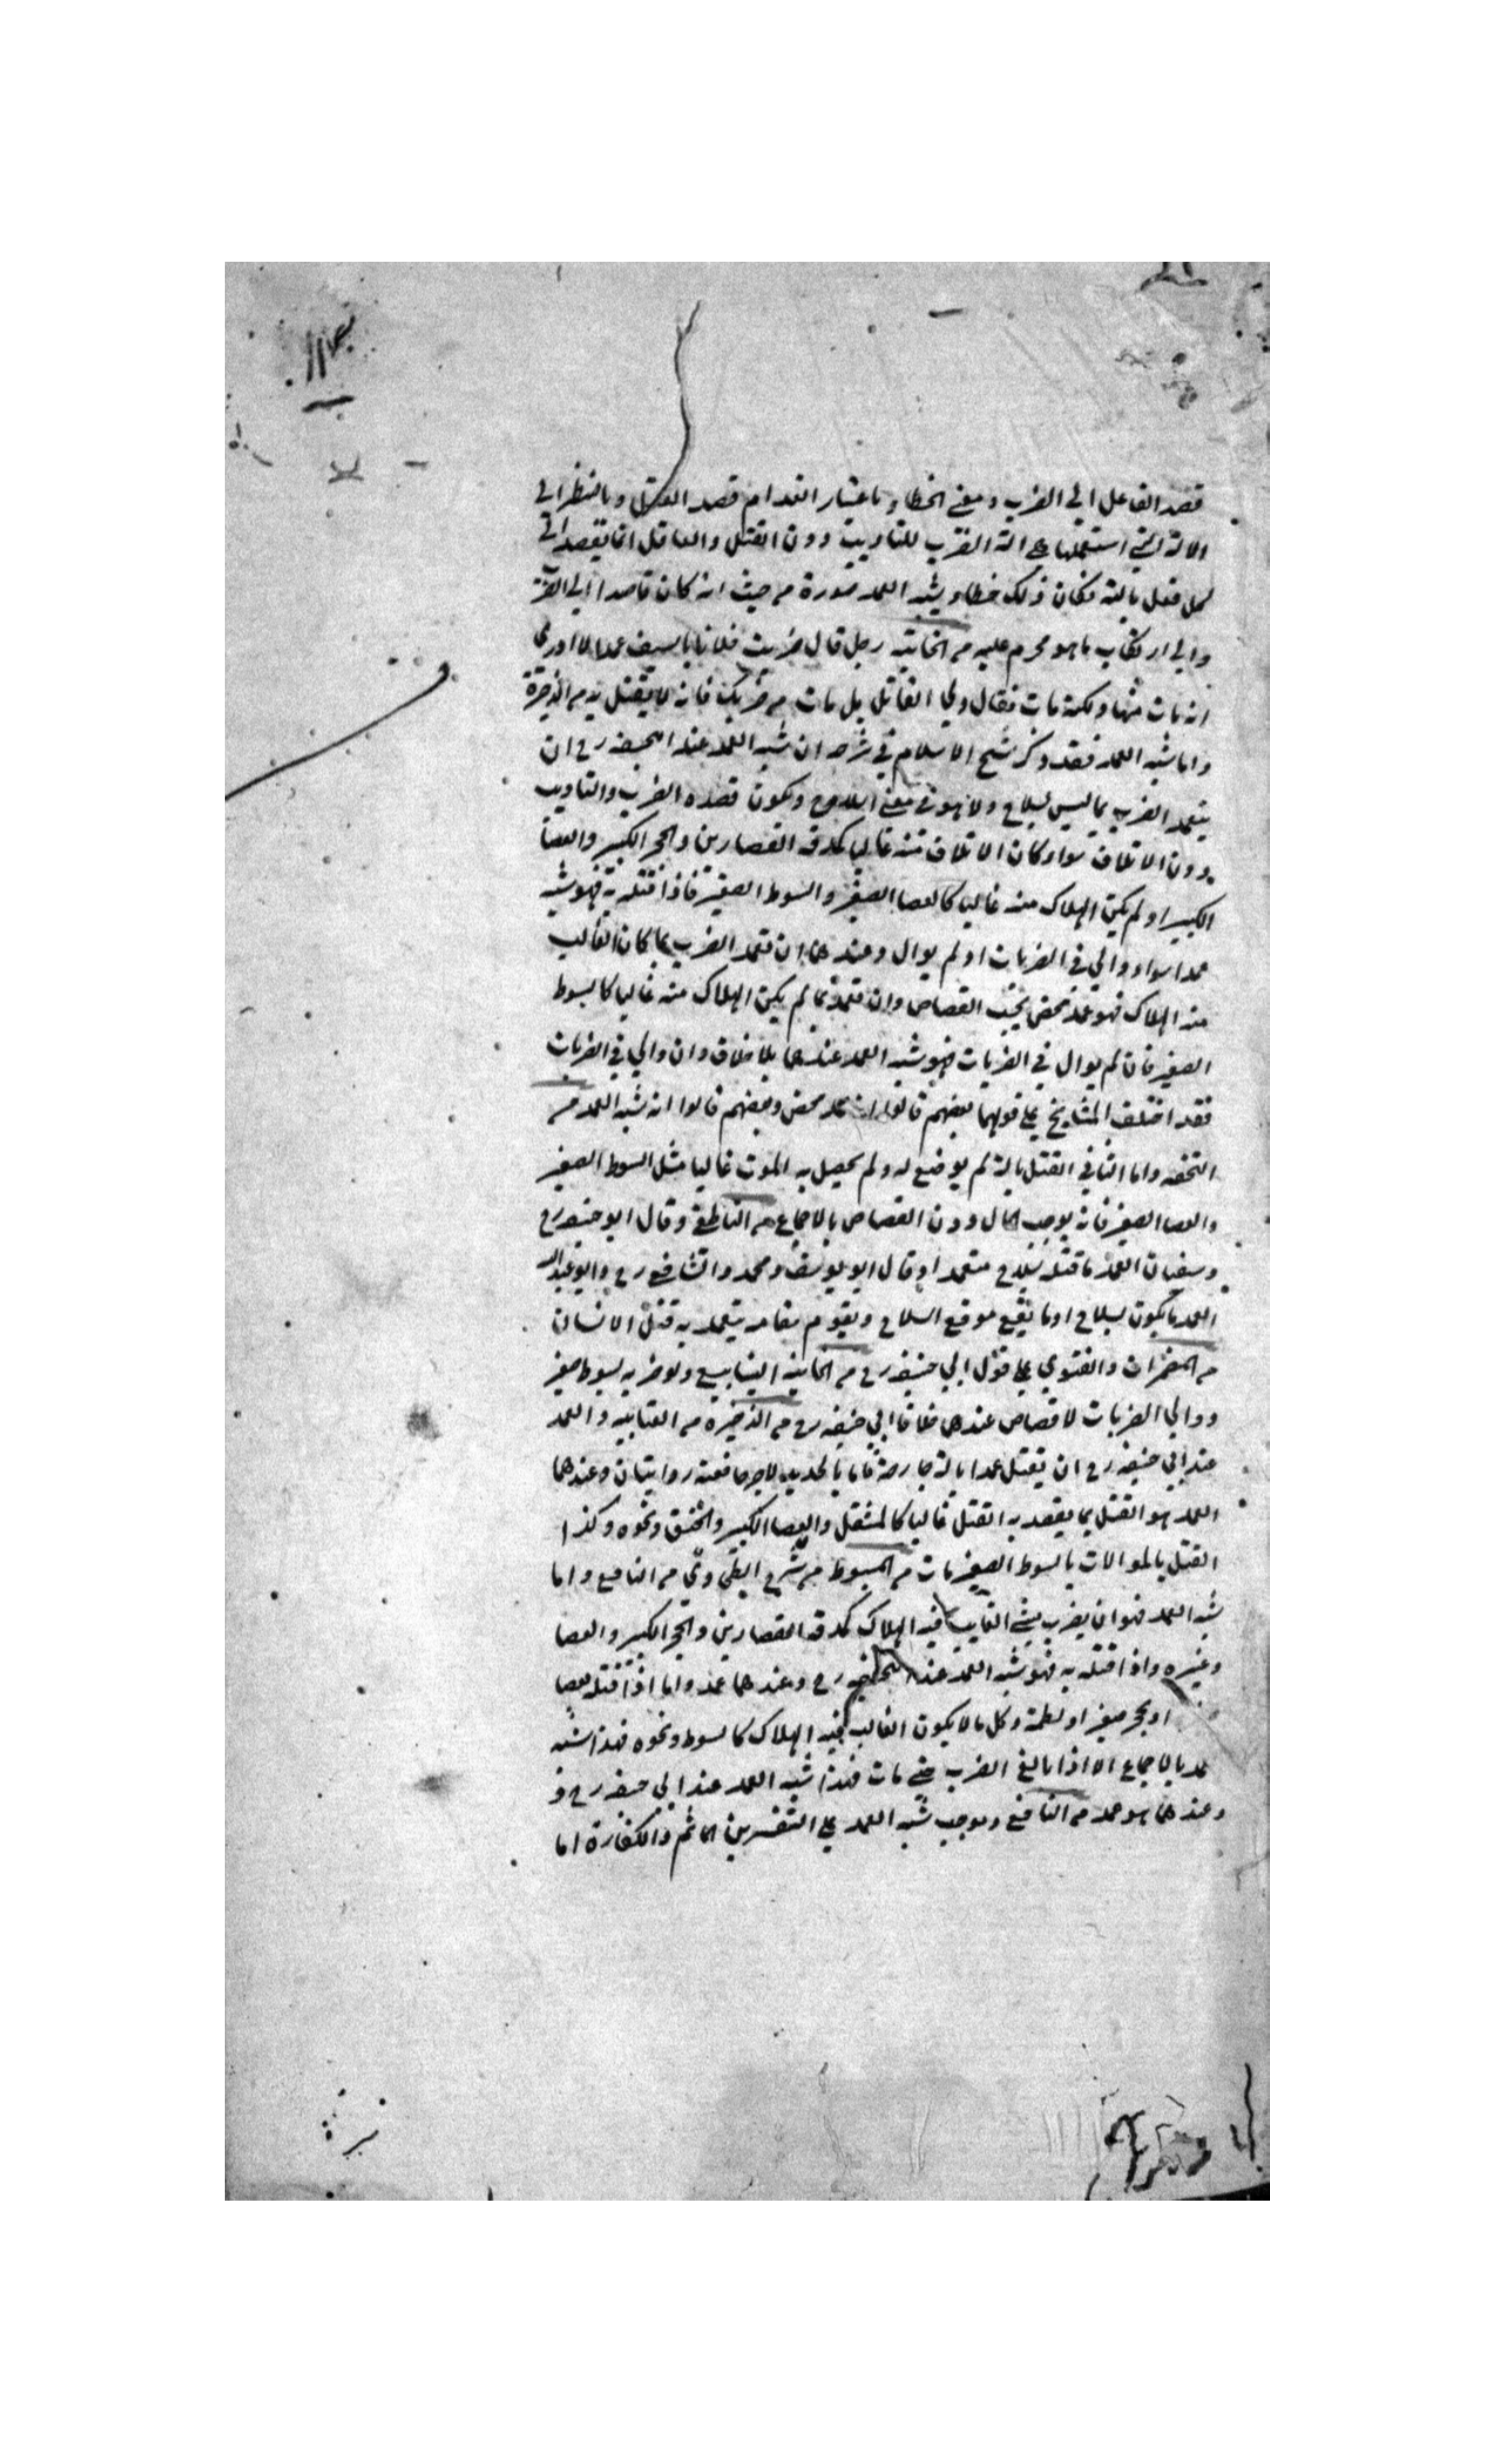 قصد الفاعل الي الضرب ومعني الخطا و باعتبار انعدام قصد القتل وبالنظر الي
الالة التي استعملها هي الة الضرب للتاديب دون القتل والعاقل انما يقصد الي
كل فعل بالته فكان ذلك خطا ويشبه العمد صورة من حيث انه كان قاصدا الي الضرب
والي ارتكاب ما هو محرم عليه من الخانيه رجل قال ضربت فلانا بالسيف عمدا لا ادري
انه مات منها ولكنه مات فقال ولي القتيل بل مات من ضربك فانه لا يقتل به من الذخيرة
واما شبه العمد فقد ذكر شيخ الاسلام في شرحه ان شبه العمد عند ابيحنيفه رح ان
يتعمد الضرب بما ليس بسلاح ولا هو في معني السلاح ويكون قصده الضرب والتاديب
دون الاتلاف سواء كان الاتلاف منه غالبا كمدقة القصارين والحجر الكبير والعصا
الكبير او لم يكن الهلاك منه غالبا كالعصا الصغير والسوط الصغير فاذا قتله به فهو شبه
عمد اسواء والي في الضربات او لم يوال وعندهما ان تعمد الضرب بما كان الغالب
منه الهلاك فهو عمد محض يجب القصاص وان تعمد بما لم يكن الهلاك منه غالبا كالسوط
الصغير فان لم يوال في الضربات فهو شبه العمد عندهما بلا خلاف وان والي في الضربات
فقد اختلف المشايخ علي قولهما بعضهم قالوا انه عمد محض وبعضهم قالوا انه شبه العمد من
التحفه واما الثاني القتل بالة لم يوضع له ولم يحصل به الموت غالبا مثل السوط الصغير
والعصا الصغير فانه يوجب المال دون القصاص بالاجماع من الناطفي وقال ابو حنيفه رح
وسفيان العمد ما قتله بسلاح متعمدا وقال ابو يوسف ومحمد والشافعي رح وابو عبد الله
العمد ما يكون بسلاح او ما يقع موقع السلاح ويقوم مقامه يتعمد به قتل الانسان
من المضمرات والفتوي علي قول ابي حنيفه رح من الخانيه الينابيع ولو ضربه بسوط صغير
ووالي الضربات لا قصاص عندهما خلافا لابي حنيفه رح من الذخيره من العتابيه والعمد
عند ابي حنيفه رح ان يقتل عمدا بالة جارحة فاما بالحديد لا جرحا فعنه روايتان وعندهما
العمد هو القتل بما يقصد به القتل غالبا كالمثقل والعصا الكبير والخنق ونحوه وكذا
القتل بالموالات بالسوط الصغير مات من المبسوط من شرح الطحاوي من النافع واما
شبه العمد فهو ان يضرب بشي الغالب فيه الهلاك كمدقة القصارين والحجر الكبير والعصا
وغيره واذا قتله به فهو شبه العمد عند ابيحنيفه رح وعندهما عمد واما اذا قتله بعصا
او بحجر صغير او لطمة وكل ما لا يكون الغالب فيه الهلاك كالسوط ونحوه فهذا شبه
عمد بالاجماع الا اذا بالغ الضرب حتي مات فهذا شبه العمد عند ابي حنيفه رح و
وعندهما هو عمد من النافع وموجب شبه العمد علي التفسيرين الماثم والكفارة اما